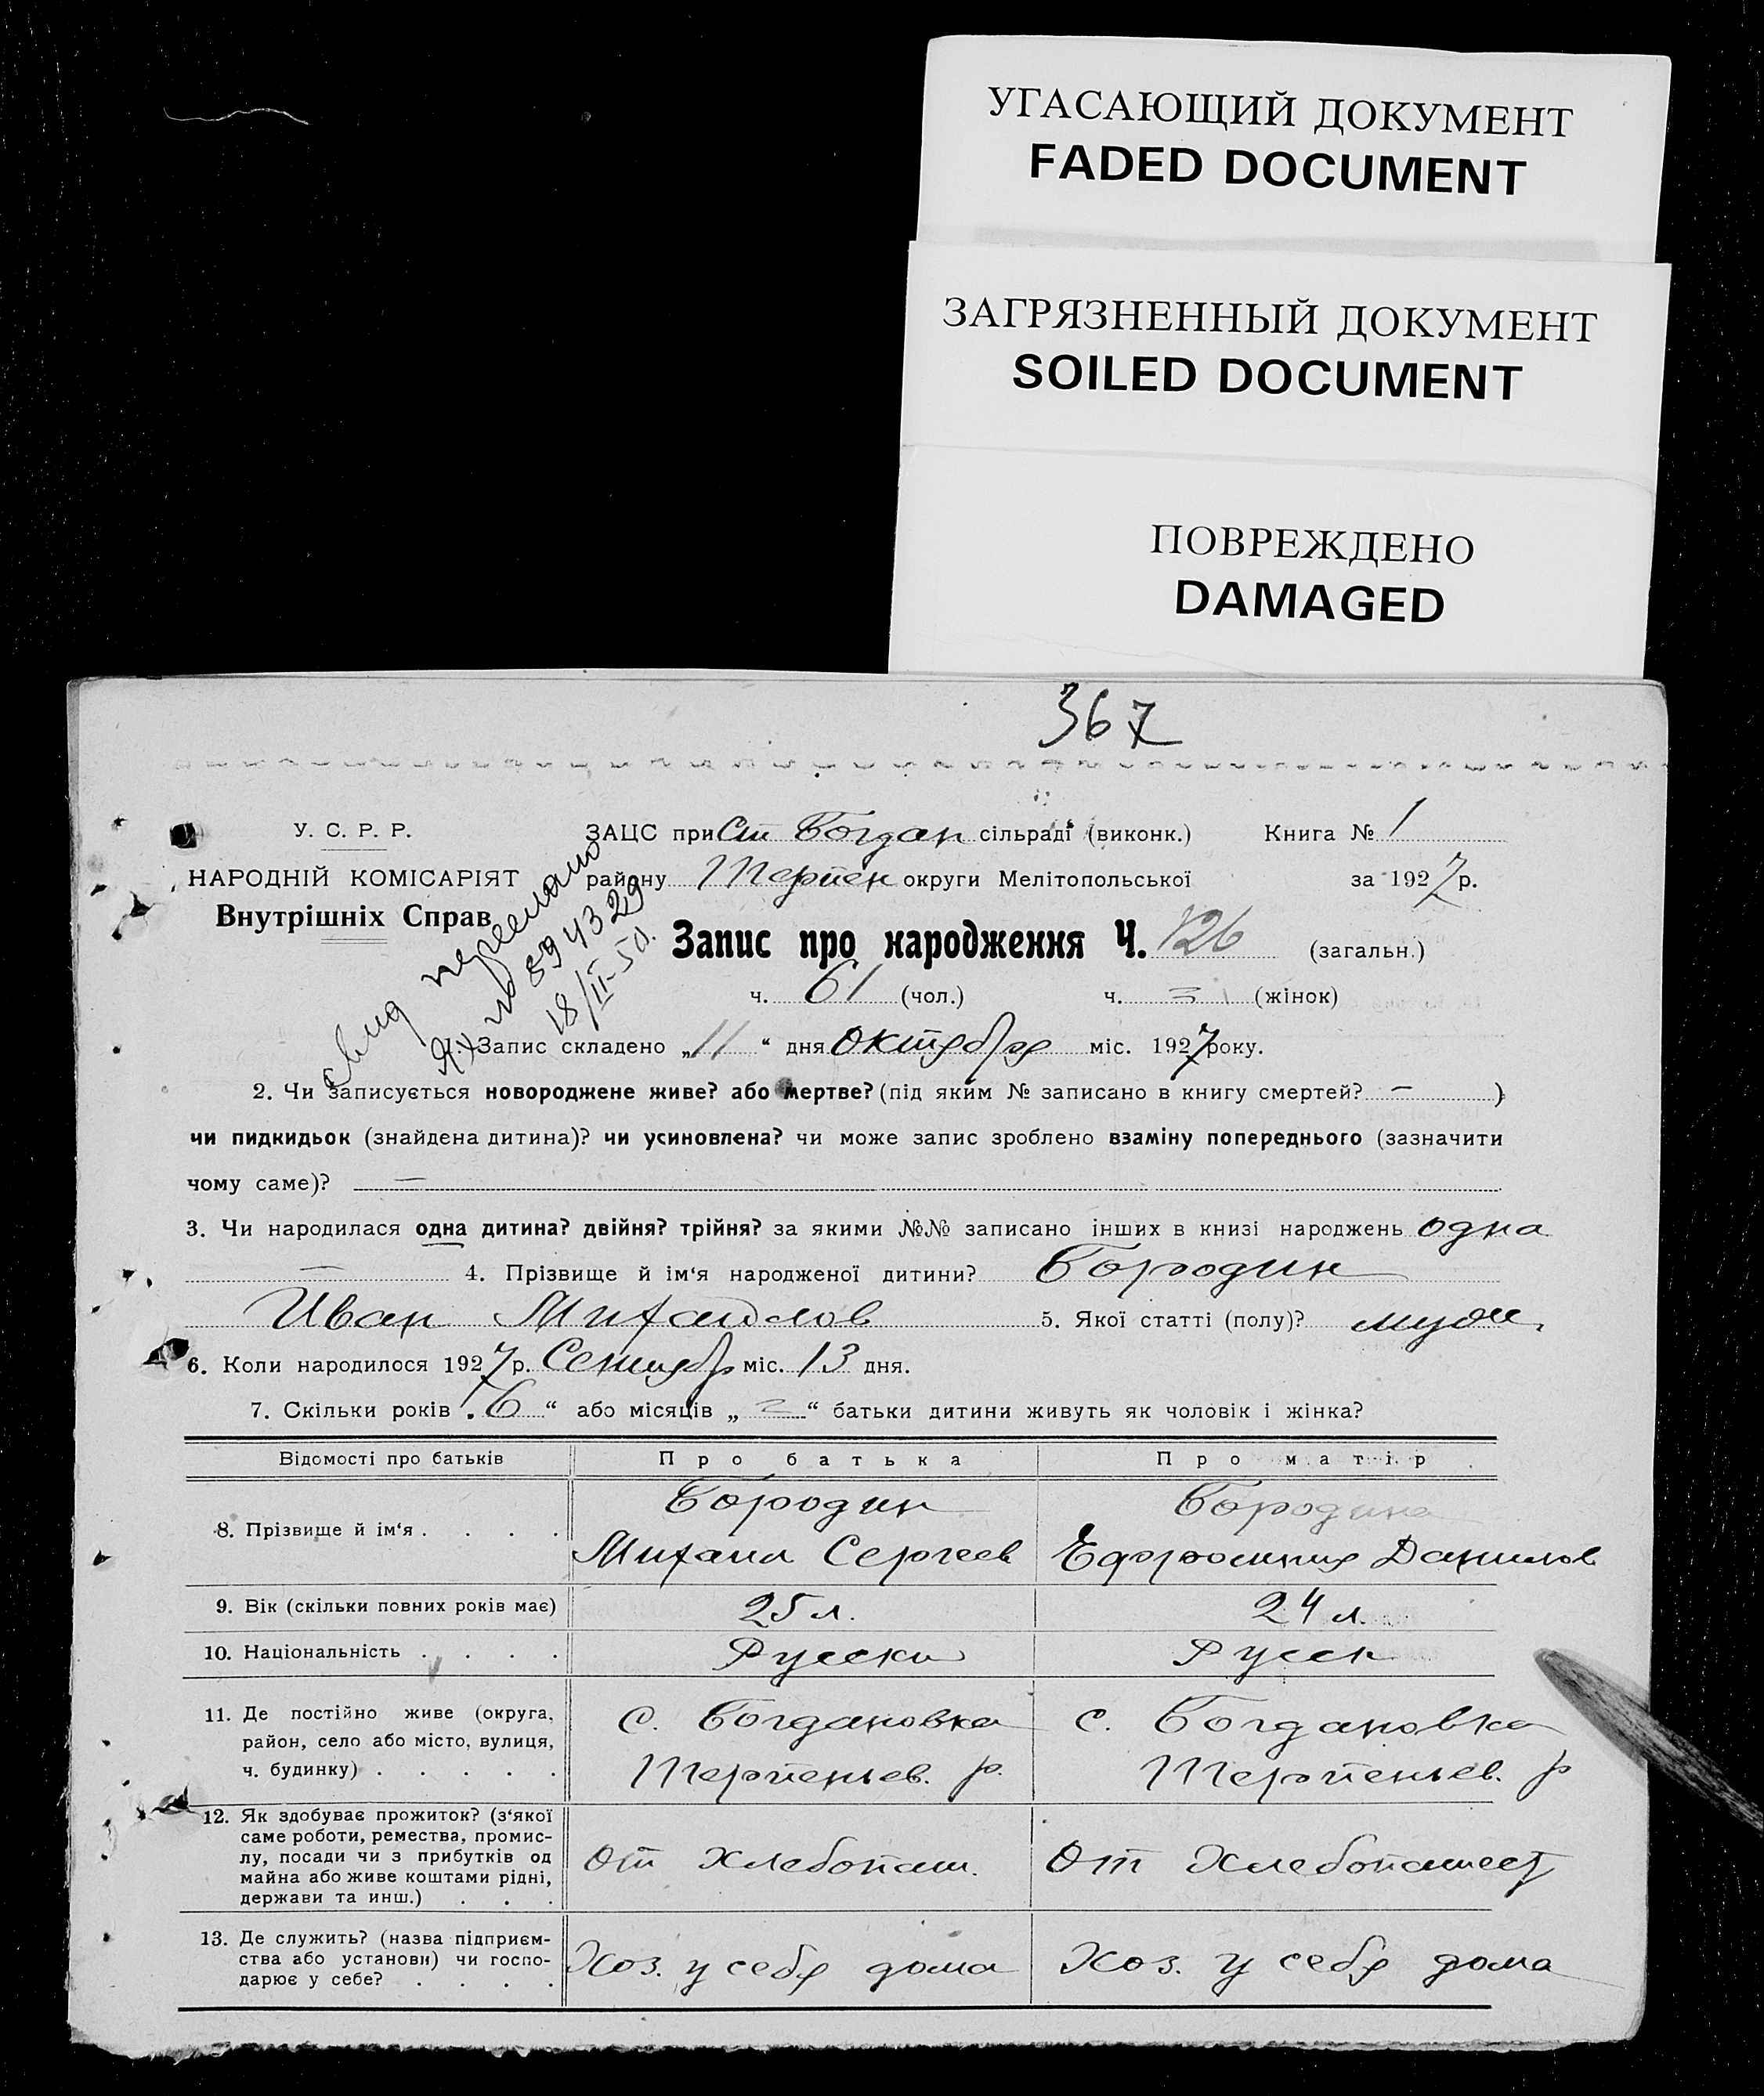 УГАСАЮЩИЙ ДОКУМЕНТ
FADED DOCUMENT
ЗАГРЯЗНЕННЫЙ ДОКУМЕНТ
SOILED DOCUMENT
ПОВРЕЖДЕНО
DAMAGED
367
У. С. Р. Р.
НАРОДНІЙ КОМІСАРІЯТ
Внутрішніх Справ
ЗАЦС при Ст Богдан сільраді (виконк.) Книга № 1
району Терпен округи Мелітопольської за 1927 р.
Запис про народження Ч. 126 (загальн.)
ч. 61 (чол.) ч. (жінок)
18/II-50.
1. Запис складено „11“ дня октября міс. 1927 року.
2. Чи записується новороджене живе? або мертве? (під яким № записано в книгу смертей? — )
чи пидкидьок (знайдена дитина)? чи усиновлена? чи може запис зроблено взаміну попереднього (зазначити
чому саме)? —
3. Чи народилася одна дитина? двійня? трійня? за якими №№ записано інших в книзі народжень одна
— 4. Прізвище й ім‘я народженої дитини? Бородин
Иван Михайлов 5. Якої статті (полу)? муж.
6. Коли народилося 1927 р. Сентябр міс. 13 дня.
7. Скільки років „6“ або місяців „ “ батьки дитини живуть як чоловік і жінка?
Відомості про батьків Про батька Про матір
8. Прізвище й ім‘я . . . . Бородин Михаил Сергеев Бородина Ефросиния Данилов
9. Вік (скільки повних років має) 25 л. 24 л.
10. Національність . . . . Русски Русск
11. Де постійно живе (округа,
район, село або місто, вулиця,
ч. будинку) . . . . .
с. Богдановка
Терпеньев. р.
с. Богдановка
Терпеньев. р
12. Як здобуває прожиток? (з‘якої
саме роботи, ремества, промис-
лу, посади чи з прибутків од
майна або живе коштами рідні,
держави та инш.) . . .
От хлебопаш.
От хлебопашест
13. Де служить? (назва підприєм-
ства або установи) чи госпо-
дарює у себе? . . . .
Хоз. у себя дома
Хоз. у себя дома